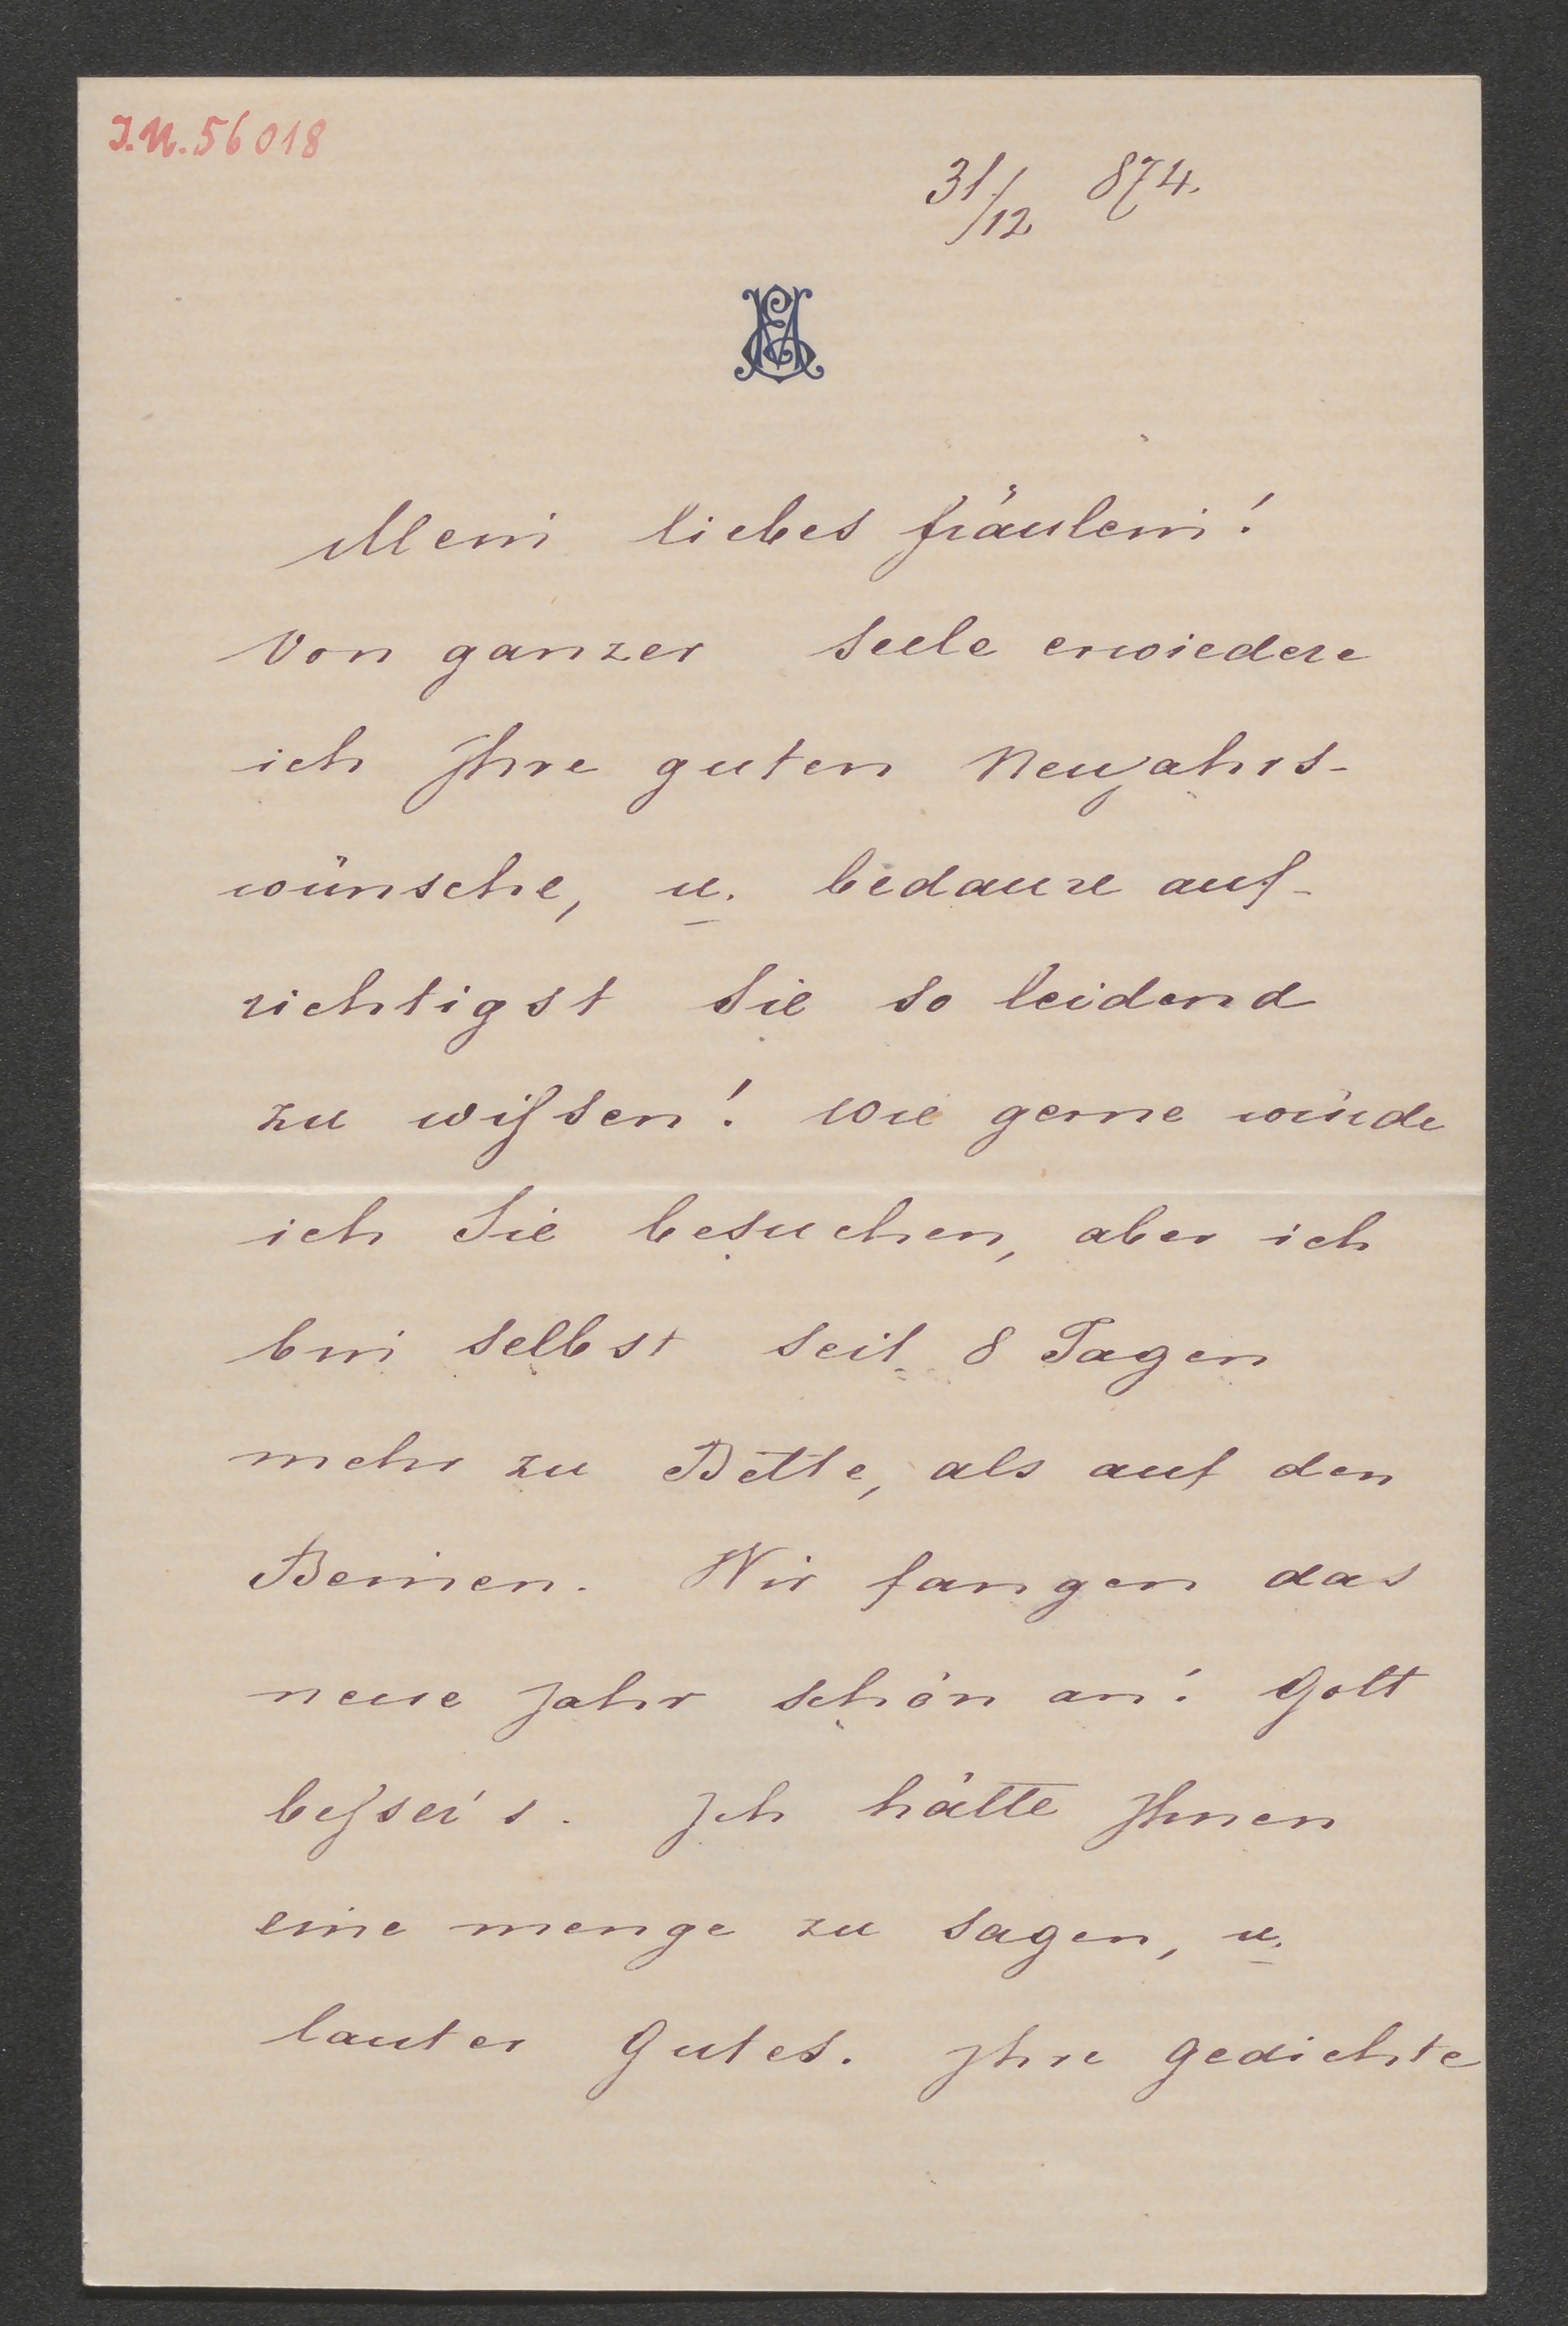 I.N. 56018
31/12 874.
Mein liebes Fräulein!
Von ganzer Seele erwiedere
ich Ihre guten Neujahrs-
wünsche, u. bedaure auf-
richtigst Sie so leidend
zu wißsen! Wie gerne würde
ich Sie besuchen, aber ich
bin selbst seit 8 Tagen
mehr zu Bette, als auf den
Beinen. Wir fangen das
neue Jahr schön an! Gott
beßser's. Ich hätte Ihnen
eine menge zu sagen, u.
lauter Gutes. Ihre Gedichte